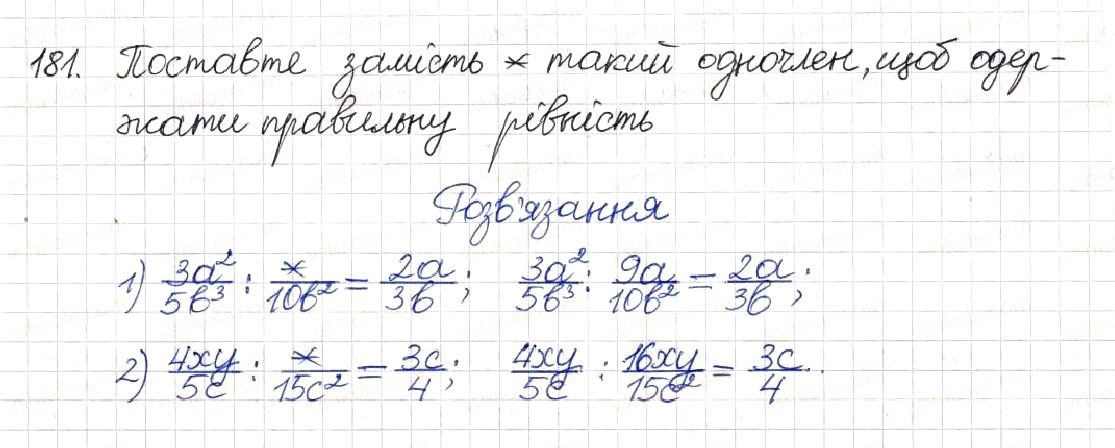 181. Поставте замість * такий одночлен, щоб одер-
жати правильну рівність
Розв'язання
1) 3a²/5b³ : */10b² = 2a/3b; 3a²/5b³ : 9a/10b² = 2a/3b;
2) 4xy/5c : */15c² = 3c/4; 4xy/5c : 16xy/15c² = 3c/4.